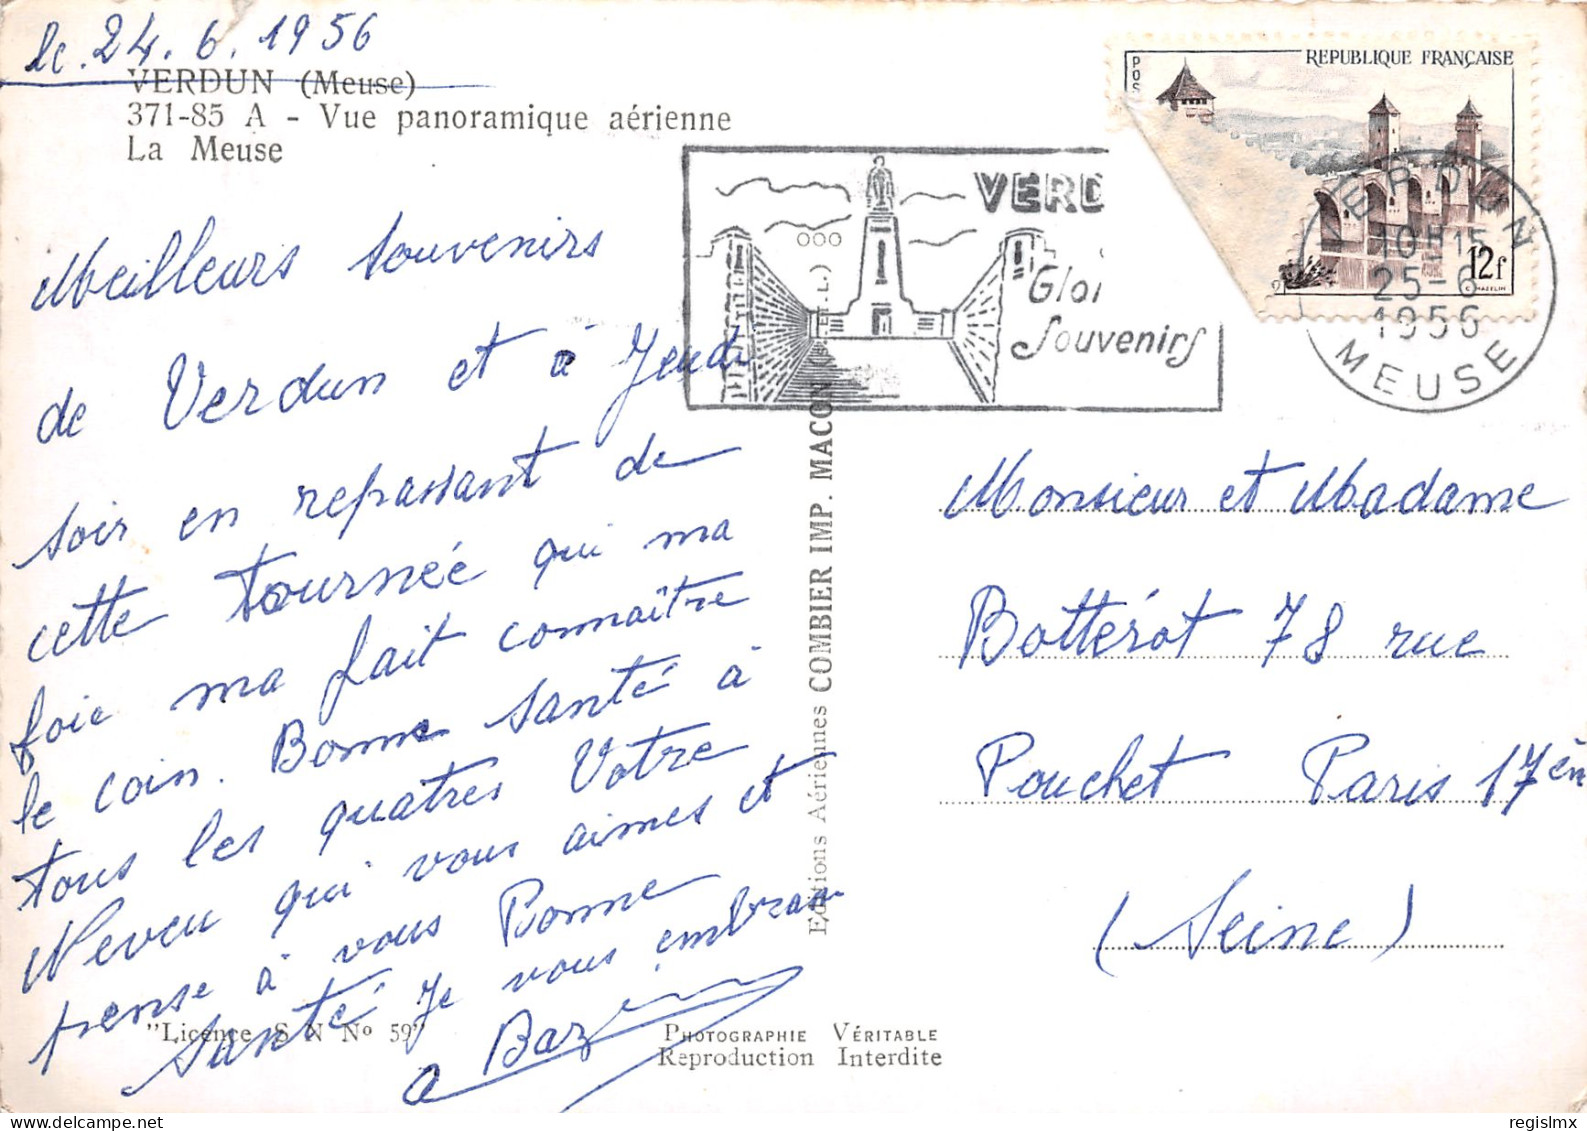 le 24.6.1956
VERDUN (Meuse)
371-85 A - Vue panoramique aérienne
La Meuse
Meilleurs souvenirs
de Verdun et à Jeudi
soir en repassant de
cette tournée qui ma
foie ma fait connaître
le coin. Bonne santé à
tous les quatres Votre
Neveu qui vous aimes et
pense à vous Bonne
santé Je vous embrasse
"Licence S N No 59"
PHOTOGRAPHIE VÉRITABLE
Reproduction Interdite
Editions Aériennes COMBIER IMP. MACON (S.-ET-L.)
VERD
Gloi
Souvenirs
REPUBLIQUE FRANÇAISE
POS
12f
C. HAZELIN
VERDUN
10H15
25-6
1956
MEUSE
Monsieur et Madame
Bottérot 78 rue
Pouchet Paris 17èm
(Seine)
regislmx